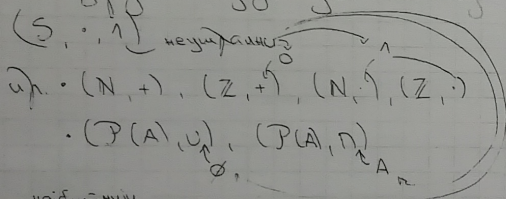 (S, ·, 1) неутрални
0 1
нпр. · (N, +), (Z, +), (N, ·), (Z, ·)
· (P(A), ∪), (P(A), ∩)
∅, A